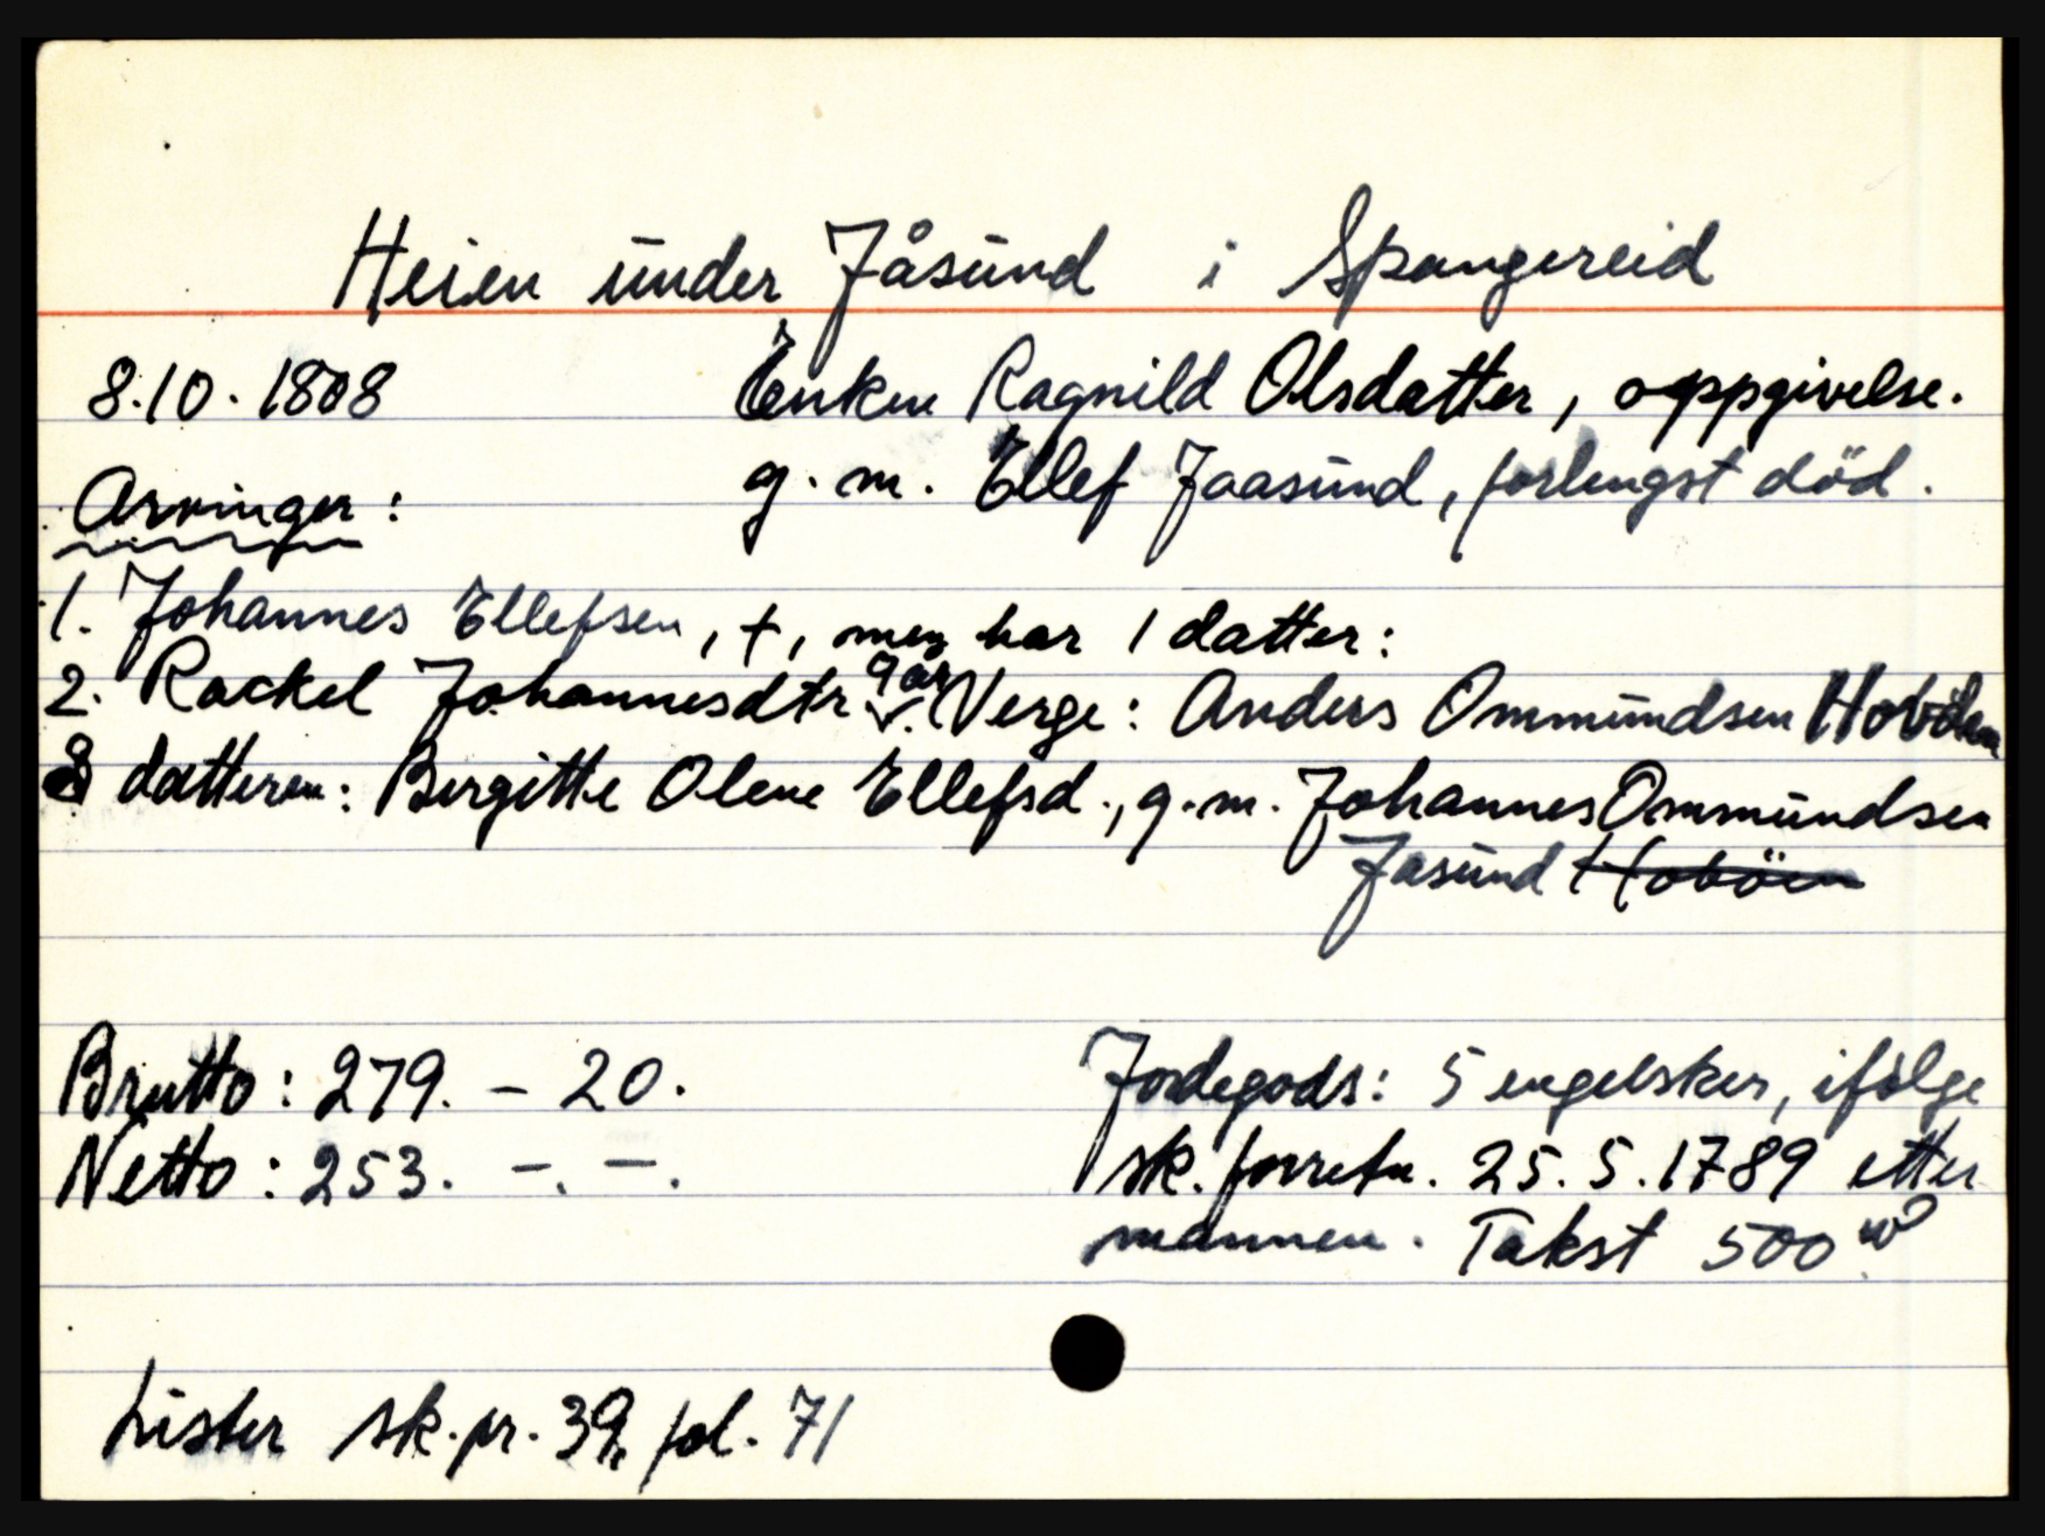 Heien under Jåsund i Spangereid
8.10.1808 Enken Ragnild Olsdatter, oppgivelse.
g.m. Ellef Jaasund, forlengst död.
Arvinger:
1. Johannes Ellefsen, +, men har 1 datter:
2. Rackel Johannesdtr 9 år. Verge: Anders Ommundsen Hovöen
datteren: Birgitte Olene Ellefsd., g.m. Johannes Ommundsen
Jasund Hoböen
Brutto: 279. - 20.
Netto: 253. -. -.
Jordegods: 5 engelsker, ifölge
sk. forretn. 25.5.1789 etter
mannen. Takst 500
Lister sk.pr. 39, fol. 71